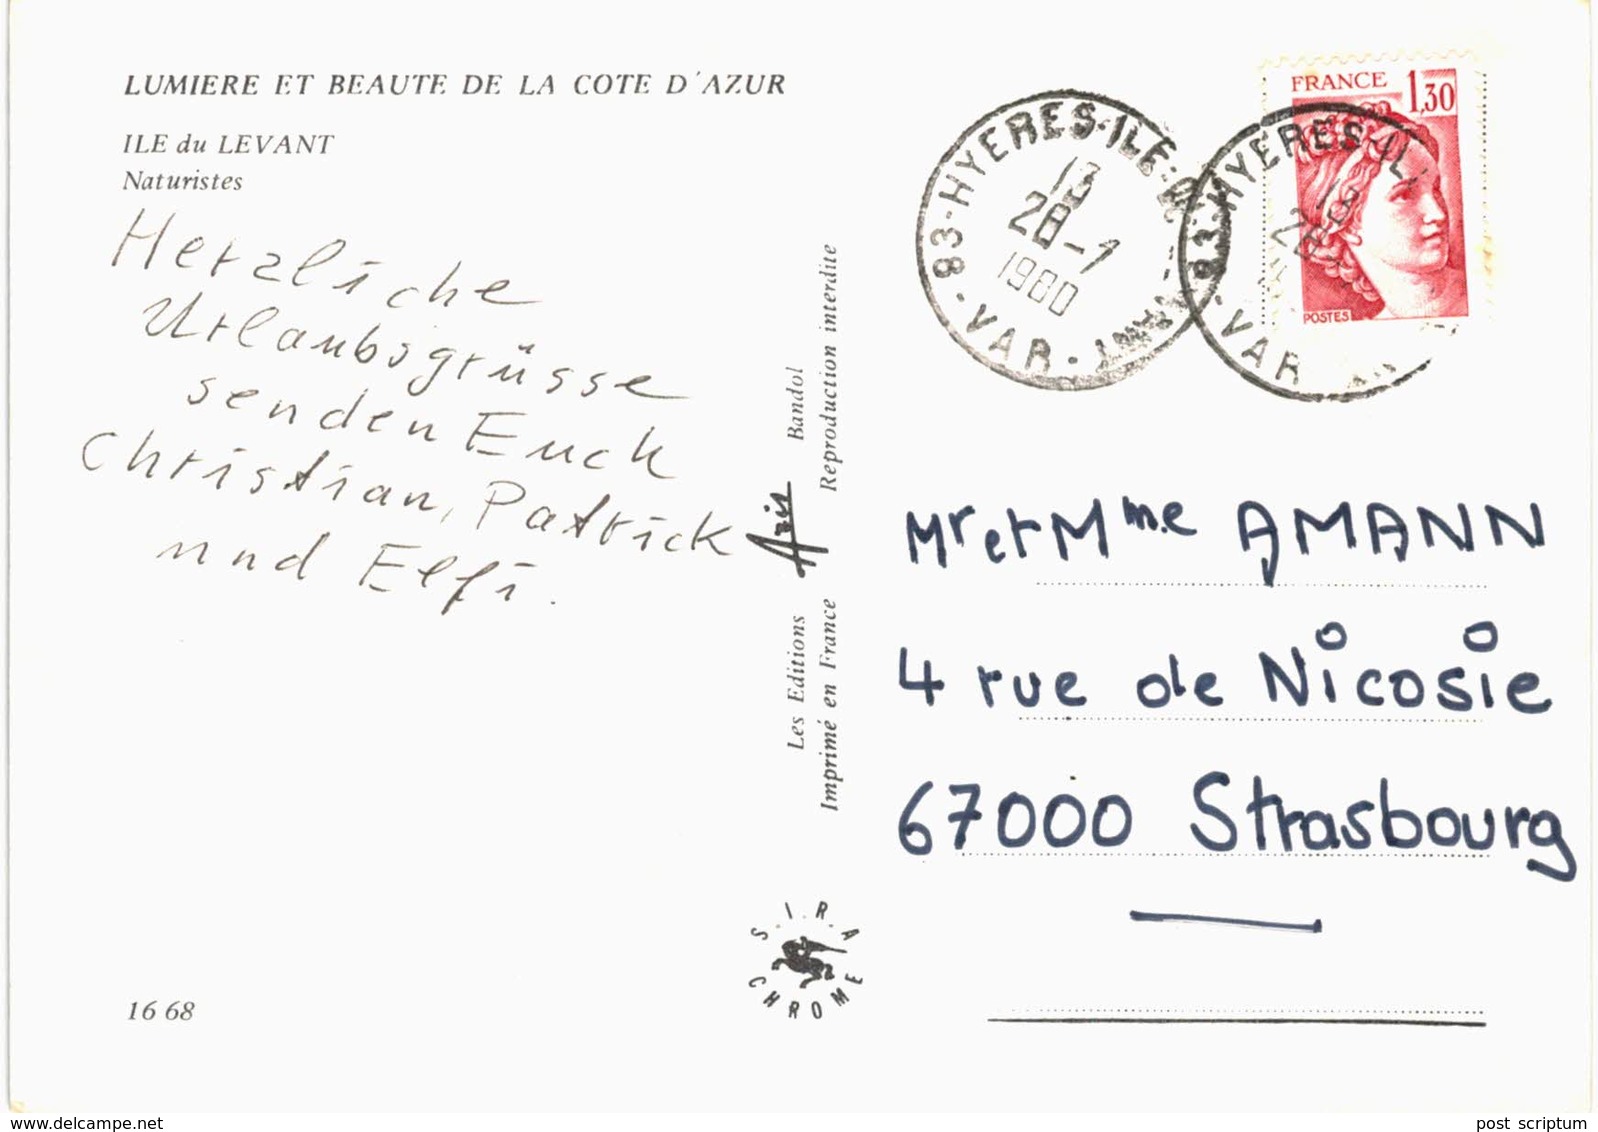 LUMIERE ET BEAUTE DE LA COTE D'AZUR
ILE du LEVANT
Naturistes
Herzliche
Urlaubsgrüsse
senden Euch
Christian, Patrick
und Elfi.
16 68
Les Editions Aris Bandol
Imprimé en France Reproduction interdite
S.I.R.A
CHROME
83-HYERES-ILE-DU-LEVANT-VAR-
13
28-7
1980
83-HYERES-IL
13
28-
VAR
FRANCE 1,30
POSTES
Mr et Mme AMANN
4 rue de Nicosie
67000 Strasbourg
delcampe.net
post scriptum